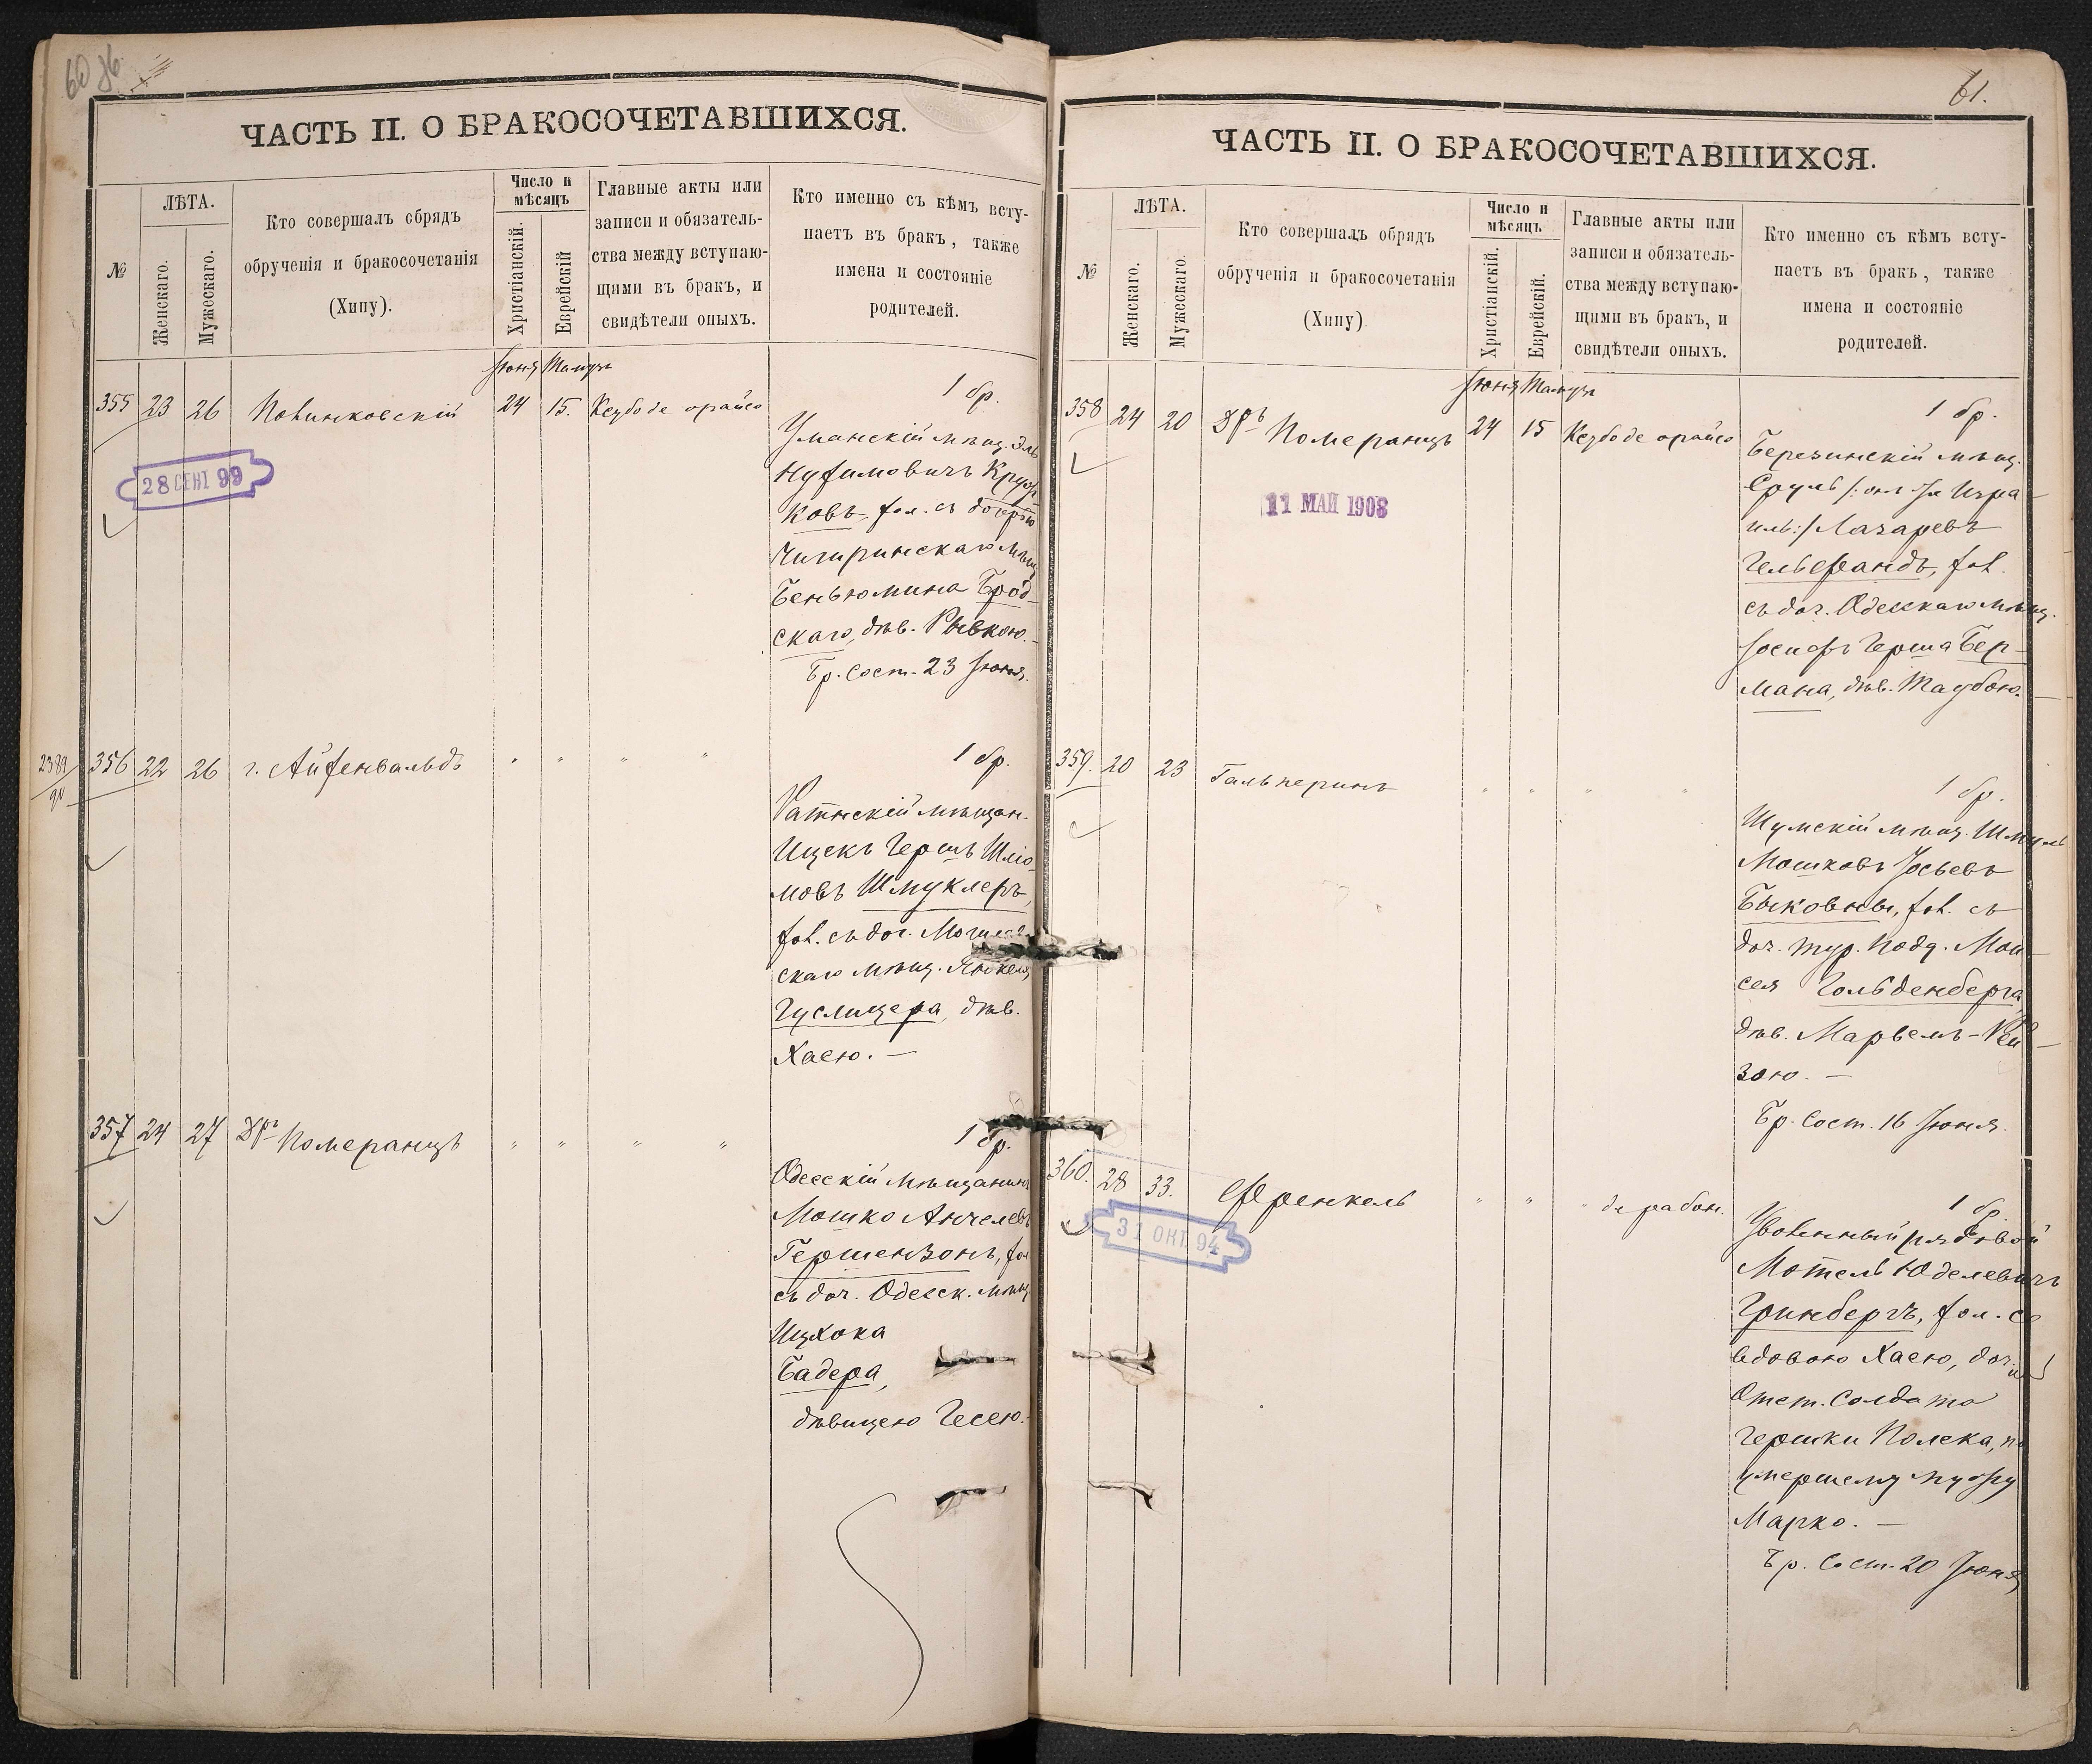 60 об.
ЧАСТЬ II. О БРАКОСОЧЕТАВШИХСЯ.
№
ЛѢТА.
Женскаго.
Мужескаго.
Кто совершалъ обрядъ
обрученія и бракосочетанія
(Хипу).
Число и
мѣсяцъ
Христіанскій.
Еврейскій
Главные акты или
записи и обязатель-
ства между вступаю-
щими въ бракъ, и
свидѣтели оныхъ.
Кто именно съ кѣмъ всту-
паетъ въ бракъ, также
имена и состояніе
родителей.
Іюня Тамузъ
355 23 26 24 15. Кезбоде орайсо
28 СЕНТ 99
1 бр.
Уманскій мѣщ. Эль
Нуфимовичъ Круп
ковъ, хол. съ дочерью
Чигиринскаго мѣщ.
Беньюмина Брод-
скаго, дѣв. Рывкою.
Бр. сост. 23 Іюня.
2389
356 22 26 г. Айхенвальдъ " " " "
1 бр.
Ратнскій мѣщан.
Ицекъ Гершъ Шліо
мовъ Шмуклеръ,
хол. съ доч.
скаго мѣщ.
Гуслицера, дѣв.
Хаею. —
357 24 27 Дръ Померанцъ " " " "
1 бр.
Одесскій мѣщанинъ
Мошко Анчелевъ
Гершензонъ, хол
съ доч. Одесск. мѣщ.
Ицхока
Бадера,
дѣвицею Гесею.
61.
ЧАСТЬ II. О БРАКОСОЧЕТАВШИХСЯ.
№
ЛѢТА.
Женскаго.
Мужескаго.
Кто совершалъ обрядъ
обрученія и бракосочетанія
(Хипу)
Число и
мѣсяцъ
Христіанскій.
Еврейскій.
Главные акты или
записи и обязатель-
ства между вступаю-
щими въ бракъ, и
свидѣтели оныхъ.
Кто именно съ кѣмъ всту-
паетъ въ бракъ, также
имена и состояніе
родителей.
Іюня Тамузъ
358 24 20 Дръ Померанцъ 24 15 Кезбоде орайсо
11 МАЙ 1908
1 бр.
Березинскій мѣщ.
Сруль /: онъ же Изра-
иль:/ Лазаревъ
Гельфандъ, хол.
съ доч. Одесскаго мѣщ.
Іосифъ Герша Бер-
мана, дѣв. Таубою.
359. 20 23 Гальперинъ " " " "
1 бр.
Шумскій мѣщ. Шмуль
Мошковъ Іосьевъ
хол. съ
доч. тур. подд. Мои-
сея Гольденберга,
дѣв. Марьемъ-Рей-
зою. —
Бр. сост. 16 Іюня.
360. 28 33. Френкель " " " де рабон.
31 ОКТ 94
1 бр.
Уволенный рядовой
Мотель Юделевичъ
Гринбергъ, хол. съ
вдовою Хаею, доч.
Отст. солдата
Гершки Полека, по
умершему мужу
Марко. —
Бр. сост. 20 Іюня